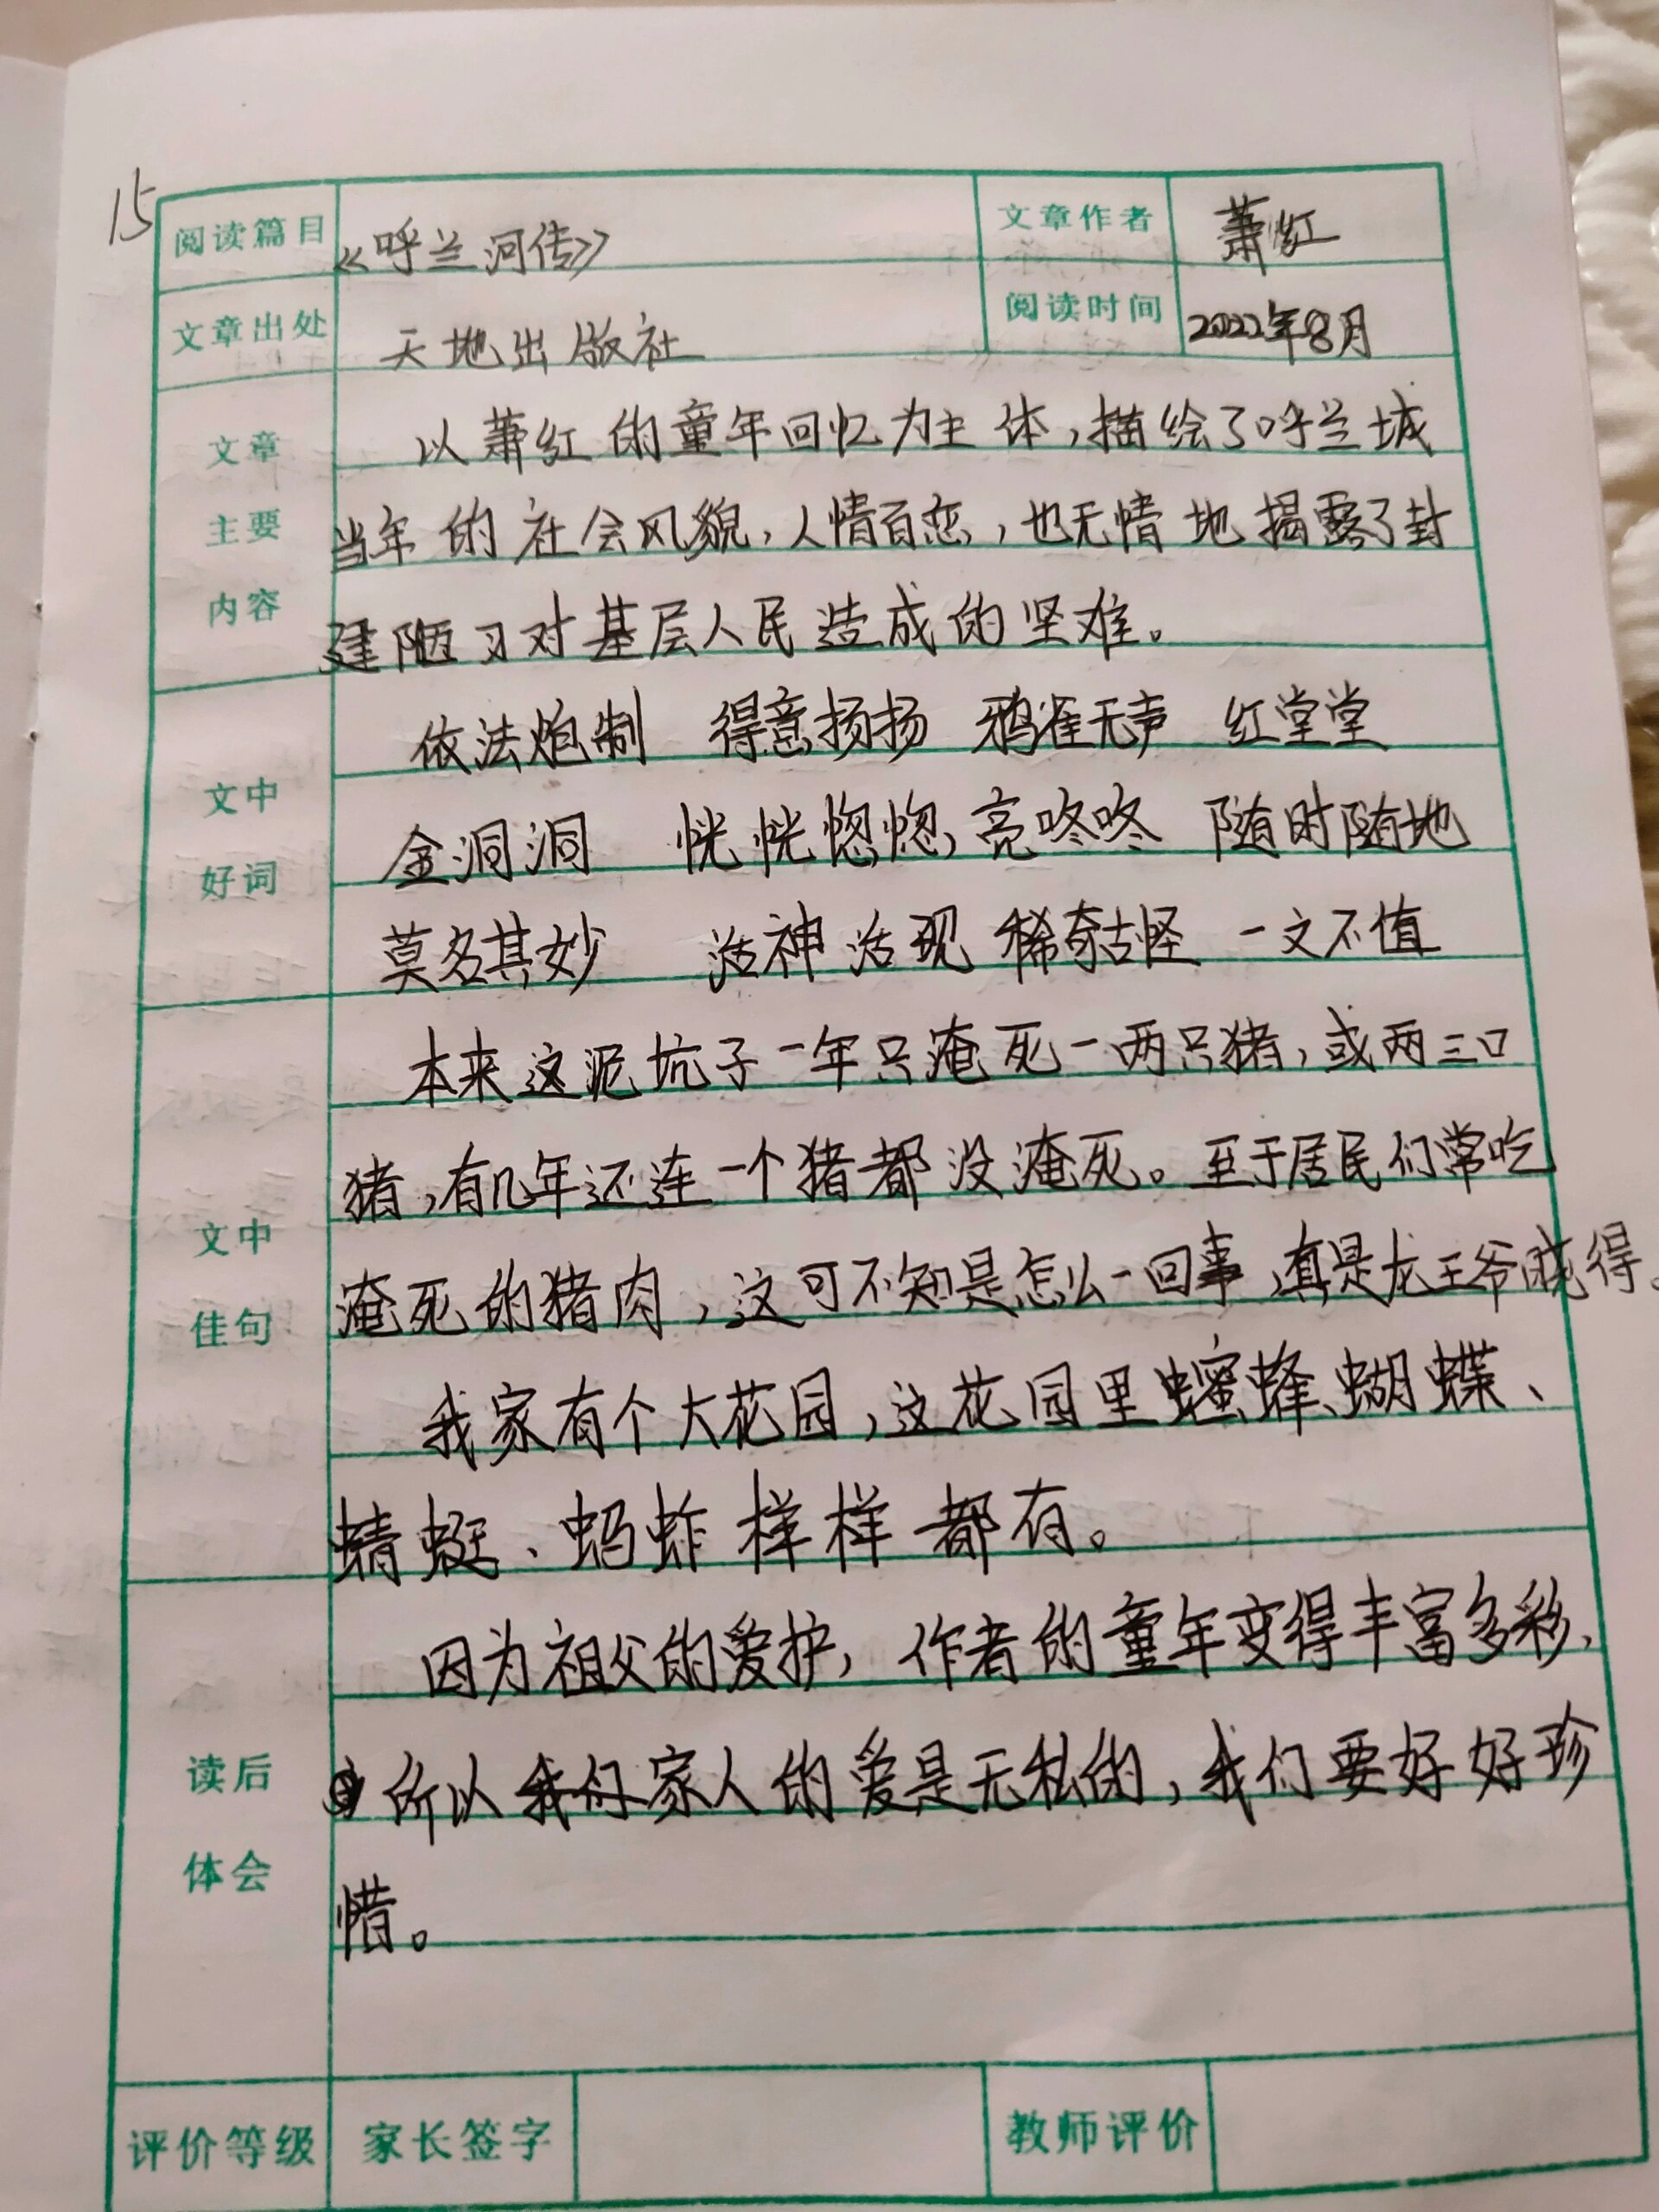 15
阅读篇目 《呼兰河传》 文章作者 萧红
文章出处 天地出版社 阅读时间 2022年8月
文章主要内容
以萧红的童年回忆为主体,描绘了呼兰城
当年的社会风貌,人情百态,也无情地揭露了封
建陋习对基层人民造成的坚难。
文中好词
依法炮制 得意扬扬 鸦雀无声 红堂堂
金洞洞 恍恍惚惚, 亮咚咚 随时随地
莫名其妙 活神活现 稀奇古怪 一文不值
文中佳句
本来这泥坑子一年只淹死一两只猪,或两三口
猪,有几年还连一个猪都没淹死。至于居民们常吃
淹死的猪肉,这可不知是怎么一回事,真是龙王爷晓得。
我家有个大花园,这花园里蜜蜂、蝴蝶、
蜻蜓、蚂蚱样样都有。
读后体会
因为祖父的爱护,作者的童年变得丰富多彩、
所以我们家人的爱是无私的,我们要好好珍
惜。
评价等级 家长签字 教师评价